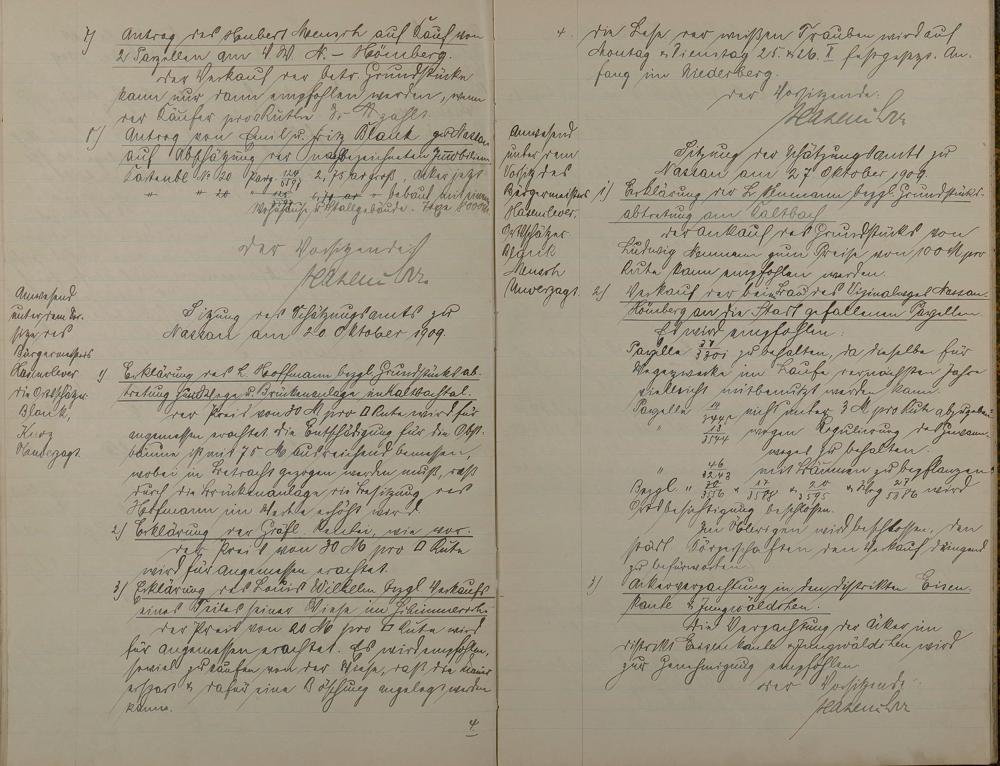 7) Antrag des Heubert Mensch auf Kauf von
2 Parzellen am V. W. N. – Hömberg.
Der Verkauf der betr. Grundstücke
kann nur dann empfohlen werden, wenn
der Käufer pro Ruthe 3,- M zahlt.
8) Antrag von Emil u. Fritz Blank zu Nassau
auf Abschätzung der nachbezeichneten Immobilien
Kartenbl. No 20 Parz. 2,75 ar groß, Acker jetzt
" " 20 " bebaut mit einem
Wohnhause u. Stallgebäude. Taxe 8000 M
Der Vorsitzende
Hasenclever
Anwesend
unter dem Vor-
sitze des
Bürgermeisters
Hasenclever
die Ortsschätzer
Blank,
Kurz
Unverzagt.
Sitzung des Schätzungsamts zu
Nassau am 20. Oktober 1909.
1) Erklärung des L. Hoffmann bezgl. Grundstücksab-
tretung zur Wege u. Brückenanlage im Kaltbachtal.
Der Preis von 30 M pro □ Rute wird für
angemessen erachtet. Die Entschädigung für die Obst-
bäume ist mit 75 M ausreichend bemessen,
wobei in Betracht gezogen werden muß, daß
durch die Brückenanlage die Besitzung des
Hofmann im Werte erhöht wird.
2) Erklärung der Gräfl. Rentei, wie vor.
Der Preis von 30 M pro □ Rute
wird für angemessen erachtet.
3) Erklärung des Louis Wilhelm bezgl. Verkaufs
eines Teiles seiner Wiese im
Der Preis von 20 M pro □ Rute wird
für angemessen erachtet. Es wird empfohlen,
soviel zu kaufen von der Wiese, daß die Mauer
erspart & dafür eine Böschung angelegt werden
kann.
4
4. Die Lese der weißen Trauben wird auf
Montag & Dienstag 25. & 26. X festgesetzt. An-
fang im Niederberg.
Der Vorsitzende:
Hasenclever
Anwesend
unter dem
Vorsitz des
Bürgermeisters
Hasenclever.
Ortsschätzer
Blank
Mensch
Unverzagt.
Sitzung des Schätzungsamts zu
Nassau am 27 Oktober 1909.
1) Erklärung der L. Numann bezgl. Grundstücks-
abtretung am Kaltbach
Der Ankauf des Grundstücks von
Ludwig Numann zum Preise von 100 M pro
Rute kann empfohlen werden.
2) Verkauf der beim Bau des Vizinalweges Nassau-
Hömberg an die Stadt gefallenen Parzellen.
Es wird empfohlen:
Parzelle zu behalten, da dieselbe für
Wegezwecke im Laufe der nächsten Jahre
vielleicht mitbenutzt werden kann.
Parzelle nicht unter 3 M pro Rute abzugeben
" wegen Regulierung des Gewann-
weges zu behalten.
" mit Bäumen zu bepflanzen.
Bezgl. " wird
Ortsbesichtigung beschlossen.
Im Übrigen wird beschlossen, den
städt. Körperschaften den Verkauf dringend
zu befürworten.
3) Ackerverpachtung in den Distrikten Eisen-
kaute & Jungwäldchen.
Die Verpachtung der Äcker im
Distrikt Eisenkaute & Jungwäldchen wird
zur Genehmigung empfohlen
Der Vorsitzende:
Hasenclever